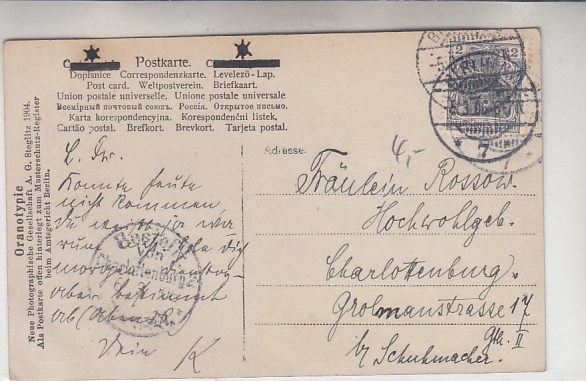 Postkarte.
Dopisnice Correspondenzkarte. Levelező-Lap.
Post card. Weltpostverein. Briefkaart.
Union postale universelle. Unione postale universale
Всемірный почтовый союзъ. Россія. Открытое письмо.
Karta korespondencyjna. Korespondenční listek,
Cartão postal. Brefkort. Brevkort. Tarjeta postal.
Oranotypie
Neue Photographische Gesellschaft A. G. Steglitz 1904.
Als Postkarte offen hinterlegt zum Musterschutz-Register
beim Amtsgericht Berlin.
Adresse.
2 2
BERLIN
7
4,-
L. Gr.
Konnte heute
nicht kommen
Du weißt ja wa
rum. Hole dich
morgen
aber bestimmt
ab (Abend
Dein K
Bestellt
von
Charlottenburg 2
Fräulein Rossow.
Hochwohlgeb.
Charlottenburg.
Grolmanstrasse 17
Gth. II
b/ Schuhmacher.